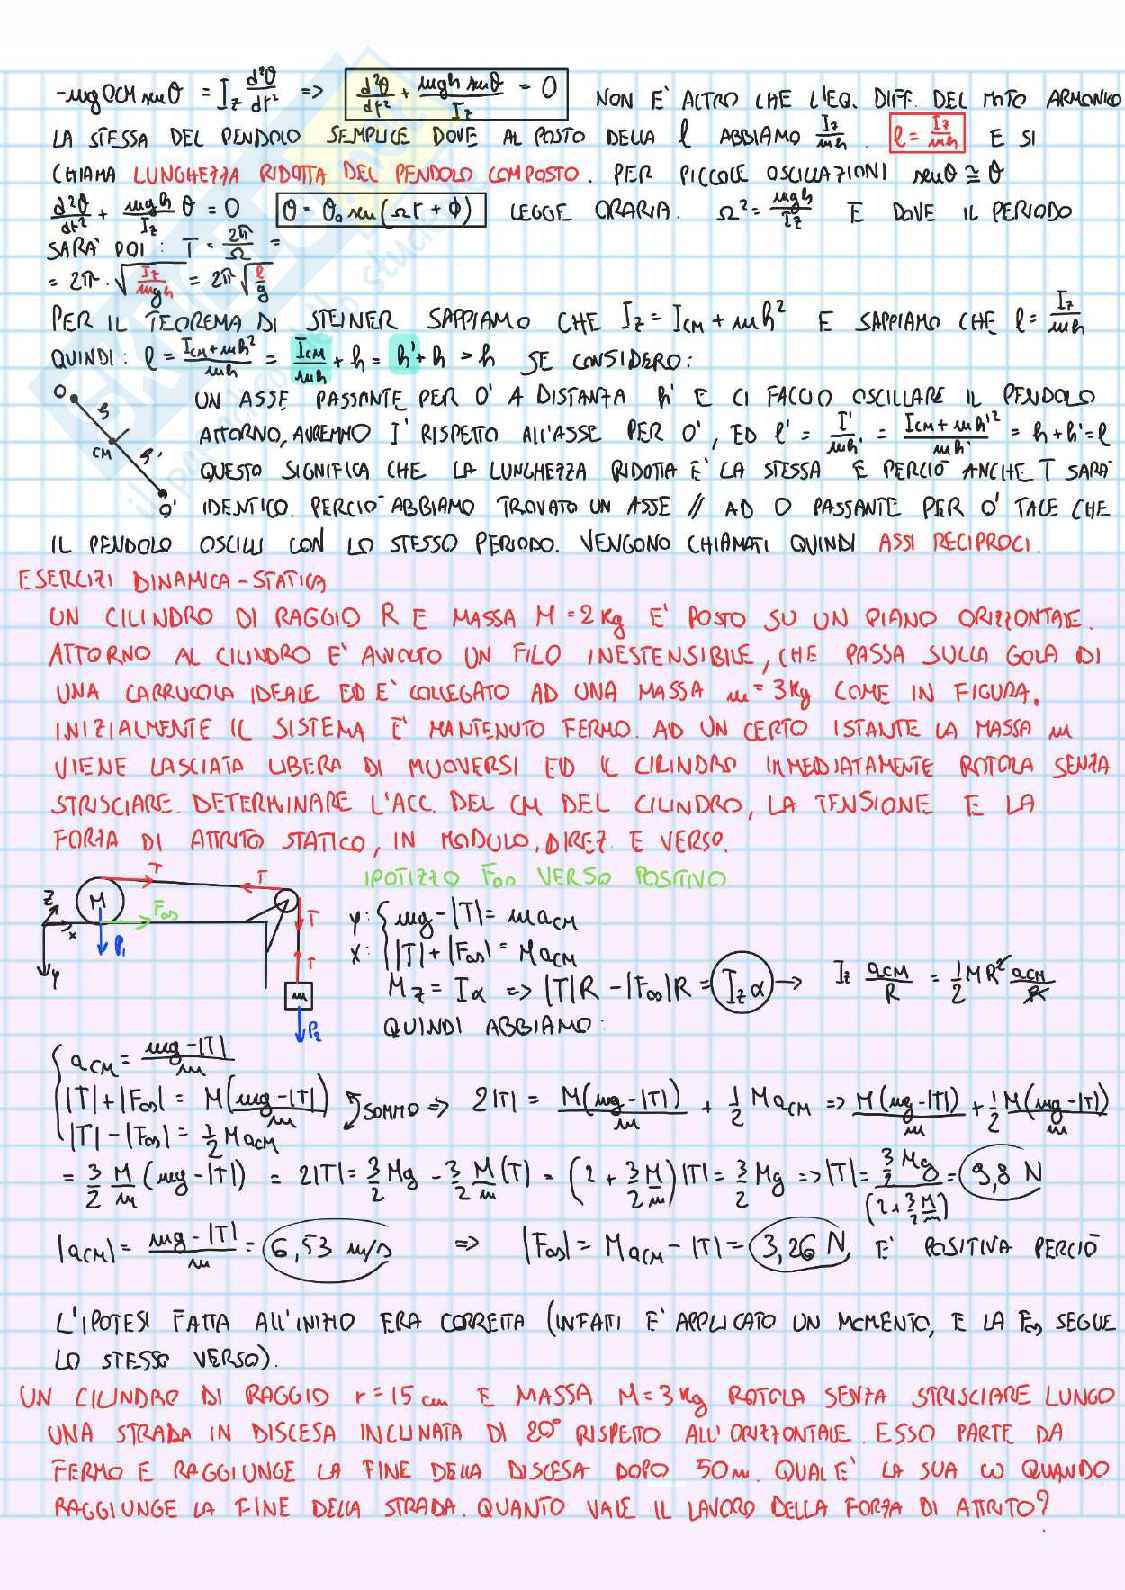 -mg OCM senθ = Iz d²θ/dt² => d²θ/dt² + mgh senθ/Iz = 0 NON E' ALTRO CHE L'EQ. DIFF. DEL MOTO ARMONICO
LA STESSA DEL PENDOLO SEMPLICE DOVE AL POSTO DELLA l ABBIAMO Iz/mh. l = Iz/mh E SI
CHIAMA LUNGHEZZA RIDOTTA DEL PENDOLO COMPOSTO. PER PICCOLE OSCILLAZIONI senθ ≅ θ
d²θ/dt² + mgh/Iz θ = 0 θ = θ₀ sen(Ωt + ϕ) LEGGE ORARIA. Ω² = mgh/Iz E DOVE IL PERIODO
SARA' POI: T = 2π/Ω =
= 2π · √(Iz/mgh) = 2π √(l/g)
PER IL TEOREMA DI STEINER SAPPIAMO CHE Iz = ICM + mh² E SAPPIAMO CHE l = Iz/mh
QUINDI: l = ICM + mh²/mh = ICM/mh + h = h' + h > h SE CONSIDERO:
O h CM h' O'
UN ASSE PASSANTE PER O' A DISTANZA h' E CI FACCIO OSCILLARE IL PENDOLO
ATTORNO, AVREMMO I' RISPETTO ALL'ASSE PER O', ED l' = I'/mh' = ICM + mh'²/mh' = h + h' = l
QUESTO SIGNIFICA CHE LA LUNGHEZZA RIDOTTA E' LA STESSA E PERCIO' ANCHE T SARA'
IDENTICO. PERCIO' ABBIAMO TROVATO UN ASSE // AD O PASSANTE PER O' TALE CHE
IL PENDOLO OSCILLI CON LO STESSO PERIODO. VENGONO CHIAMATI QUINDI ASSI RECIPROCI.
ESERCIZI DINAMICA-STATICA
UN CILINDRO DI RAGGIO R E MASSA M = 2 Kg E' POSTO SU UN PIANO ORIZZONTALE.
ATTORNO AL CILINDRO E' AVVOLTO UN FILO INESTENSIBILE, CHE PASSA SULLA GOLA DI
UNA CARRUCOLA IDEALE ED E' COLLEGATO AD UNA MASSA m = 3 Kg COME IN FIGURA.
INIZIALMENTE IL SISTEMA E' MANTENUTO FERMO. AD UN CERTO ISTANTE LA MASSA m
VIENE LASCIATA LIBERA DI MUOVERSI ED IL CILINDRO IMMEDIATAMENTE ROTOLA SENZA
STRISCIARE. DETERMINARE L'ACC. DEL CM DEL CILINDRO, LA TENSIONE E LA
FORZA DI ATTRITO STATICO, IN MODULO, DIREZ. E VERSO.
IPOTIZZO Fas VERSO POSITIVO
T T z M Fas x P1 y T T m P2
y: { mg - |T| = maCM
x: { |T| + |Fas| = MaCM
Mz = Iα => |T|R - |Fas|R = Izα → Iz aCM/R = 1/2 MR² aCM/R
QUINDI ABBIAMO:
{ aCM = mg - |T|/m
|T| + |Fas| = M(mg - |T|)/m
|T| - |Fas| = 1/2 MaCM SOMMO => 2|T| = M(mg - |T|)/m + 1/2 MaCM => M(mg - |T|)/m + 1/2 M(mg - |T|)/m
= 3/2 M/m (mg - |T|) = 2|T| = 3/2 Mg - 3/2 M/m (T) = (2 + 3/2 M/m)|T| = 3/2 Mg => |T| = 3/2 Mg/(2 + 3/2 M/m) = 9,8 N
|aCM| = mg - |T|/m = 6,53 m/s => |Fas| = MaCM - |T| = 3,26 N, E' POSITIVA PERCIO'
L'IPOTESI FATTA ALL'INIZIO ERA CORRETTA (INFATTI E' APPLICATO UN MOMENTO, E LA Fas SEGUE
LO STESSO VERSO).
UN CILINDRO DI RAGGIO r = 15 cm E MASSA M = 3 Kg ROTOLA SENZA STRISCIARE LUNGO
UNA STRADA IN DISCESA INCLINATA DI 20° RISPETTO ALL'ORIZZONTALE. ESSO PARTE DA
FERMO E RAGGIUNGE LA FINE DELLA DISCESA DOPO 50m. QUAL E' LA SUA ω QUANDO
RAGGIUNGE LA FINE DELLA STRADA. QUANTO VALE IL LAVORO DELLA FORZA DI ATTRITO?